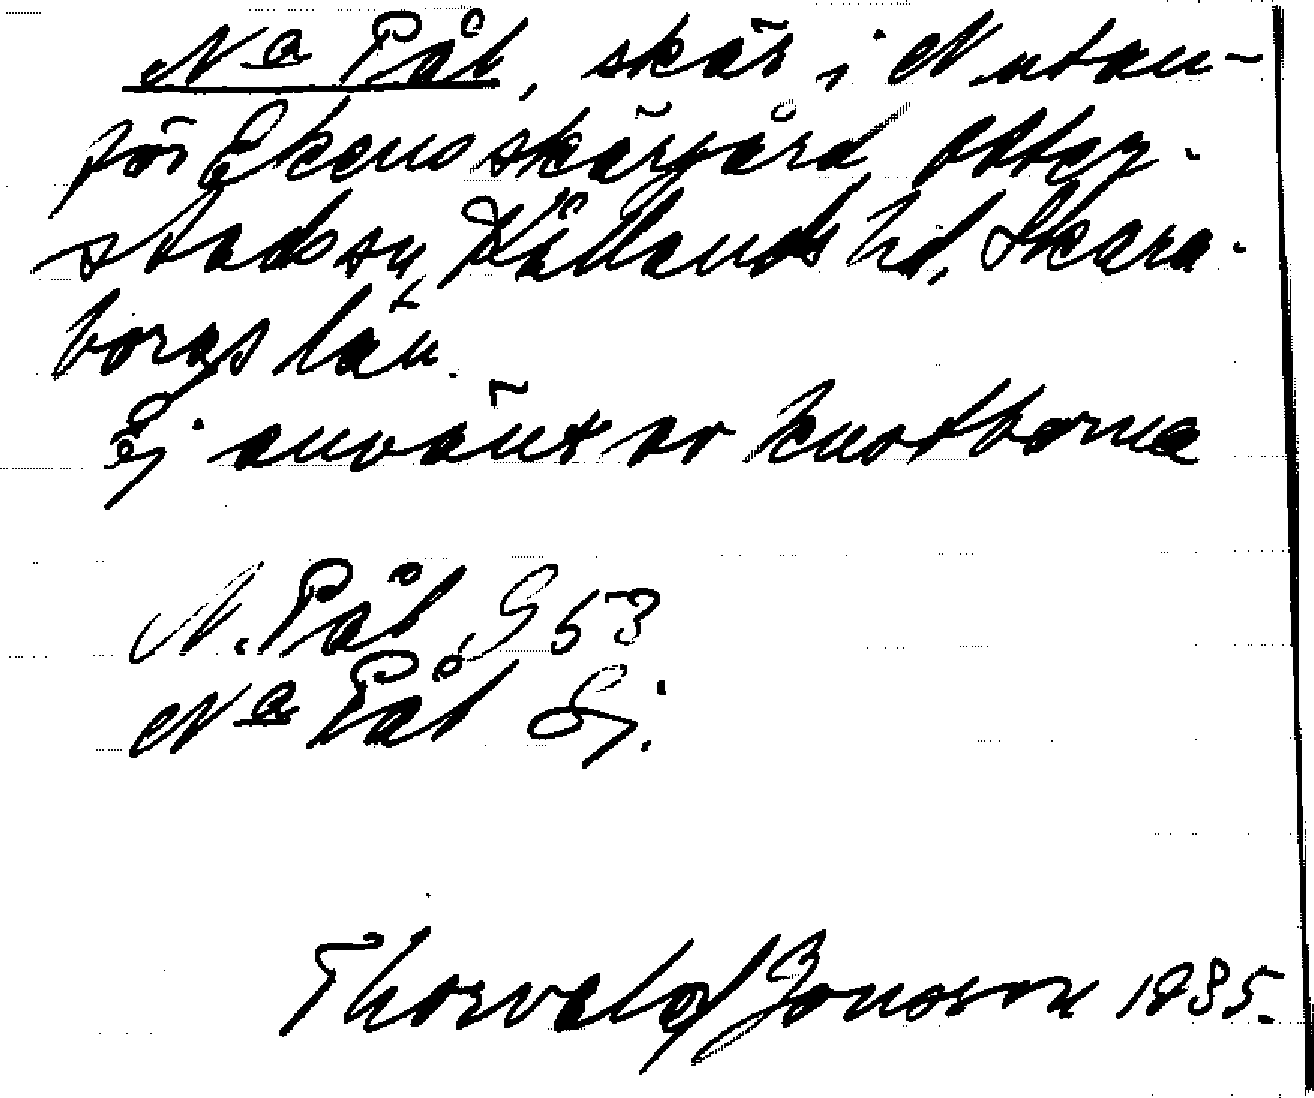 Na Pål, skär i N utan-
för Ekens skärgård, Otter-
stads sn, Kållands hd, Skara-
borgs län.
Ej använt av kustborna
N. Pål, G 53
Na Pål Sj.
Thorvald Jonsson 1935.